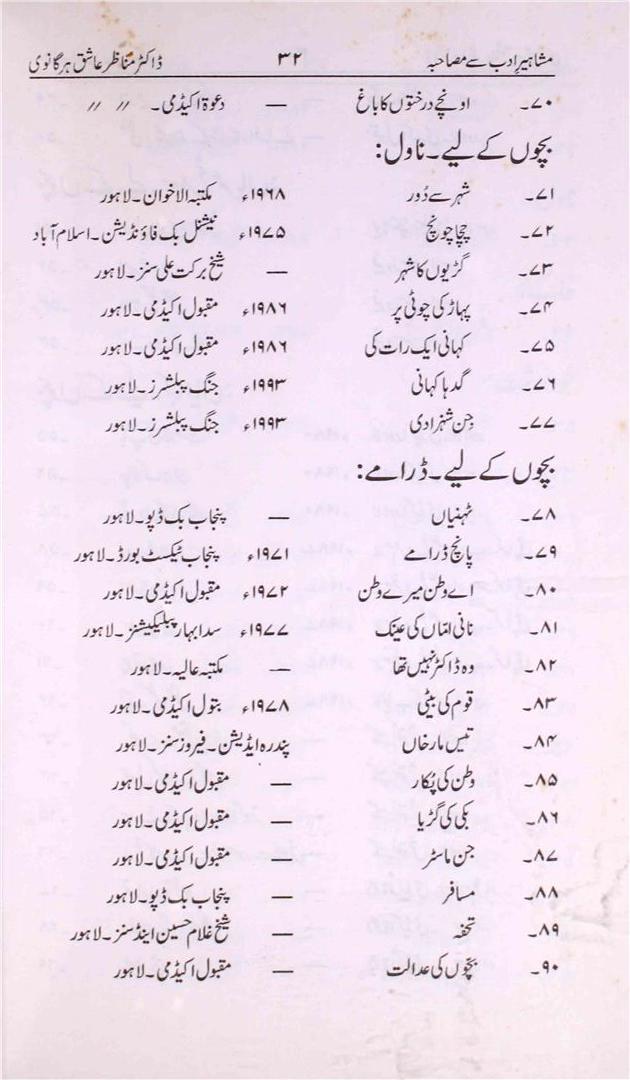 مشاہیرِ ادب سے مصاحبہ ۳۲ ڈاکٹر مناظر عاشق ہرگانوی
۷۰۔ اونچے درختوں کا باغ — دعوۃ اکیڈمی۔ 〃 〃
بچوں کے لیے۔ ناول:
۷۱۔ شہر سے دُور ۱۹۶۸ء مکتبہ الاخوان۔ لاہور
۷۲۔ چچا چونچ ۱۹۷۵ء نیشنل بک فاؤنڈیشن۔ اسلام آباد
۷۳۔ گڑیوں کا شہر — شیخ برکت علی سنز۔ لاہور
۷۴۔ پہاڑ کی چوٹی پر ۱۹۸۶ء مقبول اکیڈمی۔ لاہور
۷۵۔ کہانی ایک رات کی ۱۹۸۶ء مقبول اکیڈمی۔ لاہور
۷۶۔ گدہا کہانی ۱۹۹۳ء جنگ پبلشرز۔ لاہور
۷۷۔ جِن شہزادی ۱۹۹۳ء جنگ پبلشرز۔ لاہور
بچوں کے لیے۔ ڈرامے:
۷۸۔ ٹہنیاں — پنجاب بک ڈپو۔ لاہور
۷۹۔ پانچ ڈرامے ۱۹۷۱ء پنجاب ٹیکسٹ بورڈ۔ لاہور
۸۰۔ اے وطن میرے وطن ۱۹۷۲ء مقبول اکیڈمی۔ لاہور
۸۱۔ نانی امّاں کی عینک ۱۹۷۷ء سدا بہار پبلیکیشنز۔ لاہور
۸۲۔ وہ ڈاکٹر نہیں تھا — مکتبہ عالیہ۔ لاہور
۸۳۔ قوم کی بیٹی ۱۹۷۸ء بتول اکیڈمی۔ لاہور
۸۴۔ تیس مار خاں پندرہ ایڈیشن۔ فیروز سنز۔ لاہور
۸۵۔ وطن کی پُکار — مقبول اکیڈمی۔ لاہور
۸۶۔ بکی کی گڑیا — مقبول اکیڈمی۔ لاہور
۸۷۔ جن ماسٹر — مقبول اکیڈمی۔ لاہور
۸۸۔ مسافر — پنجاب بک ڈپو۔ لاہور
۸۹۔ تحفہ — شیخ غلام حسین اینڈ سنز۔ لاہور
۹۰۔ بچّوں کی عدالت — مقبول اکیڈمی۔ لاہور